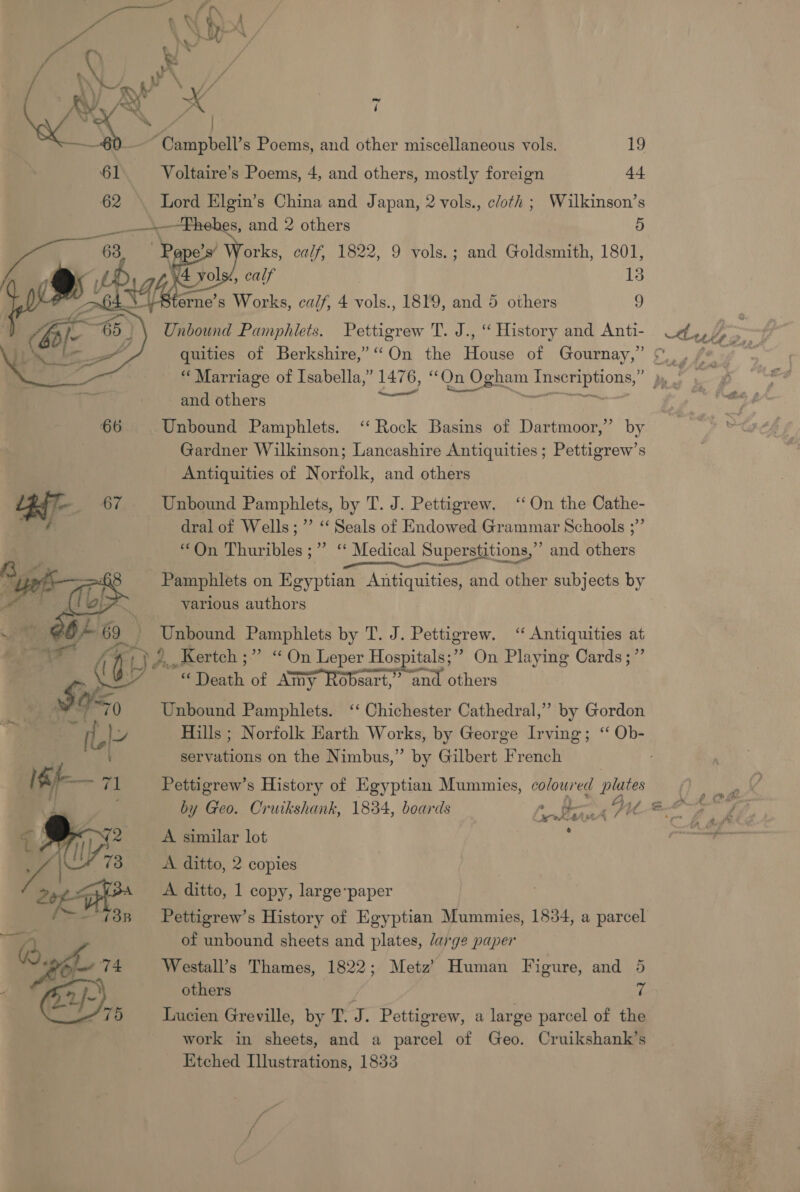 7
60 Campbell’s Poems, and other miscellaneous vols. 19
61 Voltaire’s Poems, 4, and others, mostly foreign 44
62 Lord Elgin’s China and Japan, 2 vols., cloth ; Wilkinson’s
Thebes, and 2 others 5
63 Pope’s Works, calf, 1822, 9 vols. ; and Goldsmith, 1801,
4 vols., calf 13
64 Sterne’s Works, calf, 4 vols., 1819, and 5 others 9
65 Unbound Pamphlets. Pettigrew T. J., “ History and Anti-
quities of Berkshire,” “On the House of Gournay,”
“ Marriage of Isabella,” 1476, “On Ogham Inscriptions,”
and others
66 Unbound Pamphlets. “ Rock Basins of Dartmoor,” by
Gardner Wilkinson; Lancashire Antiquities ; Pettigrew’s
Antiquities of Norfolk, and others
67 Unbound Pamphlets, by T. J. Pettigrew. “On the Cathe-
dral of Wells ; ” “ Seals of Endowed Grammar Schools ;”
“On Thuribles ; ” “ Medical Superstitions,” and others
68 Pamphlets on Egyptian Antiquities, and other subjects by
various authors
69 Unbound Pamphlets by T. J. Pettigrew. “ Antiquities at
Kertch ; ” “ On Leper Hospitals;” On Playing Cards ; ”
“ Death of Amy Robsart,” and others
70 Unbound Pamphlets. “ Chichester Cathedral,” by Gordon
Hills ; Norfolk Earth Works, by George Irving; “ Ob-
servations on the Nimbus,” by Gilbert French
71 Pettigrew’s History of Egyptian Mummies, coloured plates
by Geo. Cruikshank, 1834, boards
72 A similar lot
73 A ditto, 2 copies
73A A ditto, 1 copy, large paper
73B Pettigrew’s History of Egyptian Mummies, 1834, a parcel
of unbound sheets and plates, large paper
74 Westall’s Thames, 1822; Metz’ Human Figure, and 5
others 7
75 Lucien Greville, by T. J. Pettigrew, a large parcel of the
work in sheets, and a parcel of Geo. Cruikshank’s
Etched Illustrations, 1833